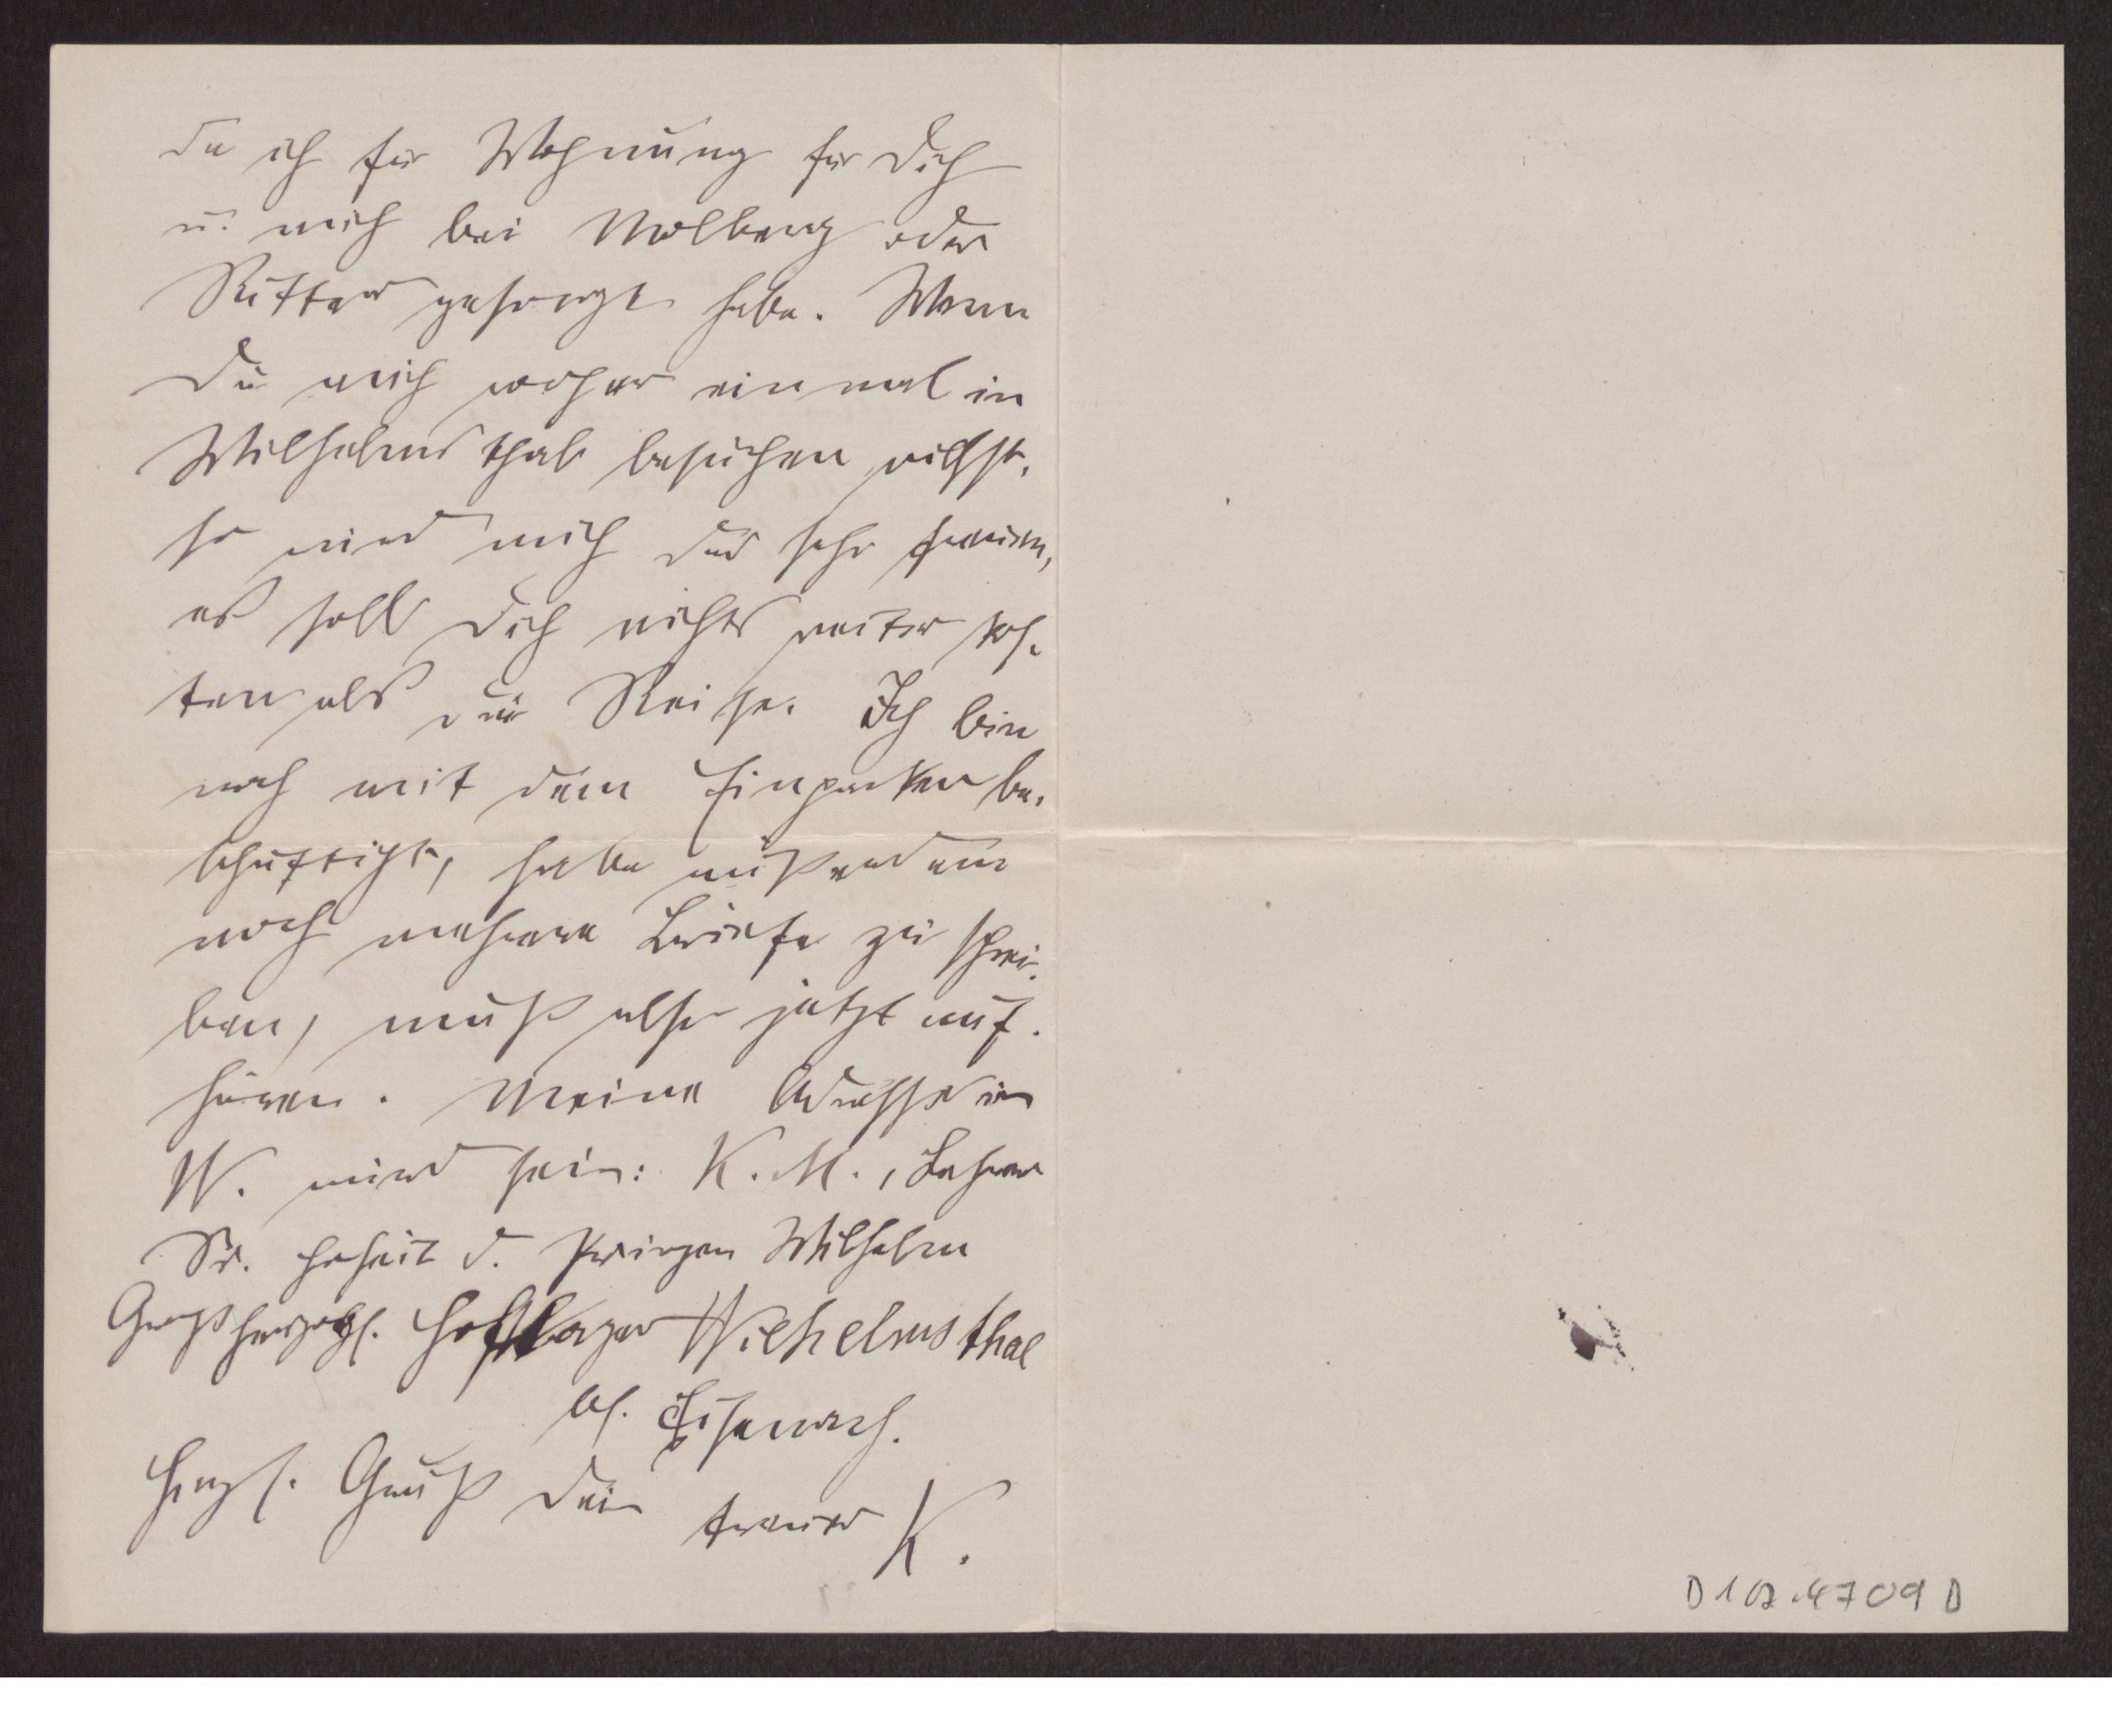 da ich für Wohnung für Dich
u. mich bei Molberg oder
Ritter gesorgt habe. Wenn
Du mich vorher einmal in
Wilhelmsthal besuchen willst,
so wird mich das sehr freuen,
es soll Dich nichts weiter kos-
ten als die Reise. Ich bin
noch mit dem Einpacken be-
schäftigt, habe außerdem
noch mehrere Briefe zu schrei-
ben, muß also jetzt auf-
hören. Meine Adresse in
W. wird sein: K. M., Lehrer
Sr. Hoheit d. Prinzen Wilhelm
Großherzogl. Hoflager Wilhelmsthal
b/. Eisenach.
Herzl. Gruß Dein treuer K.
D 107.4709 D